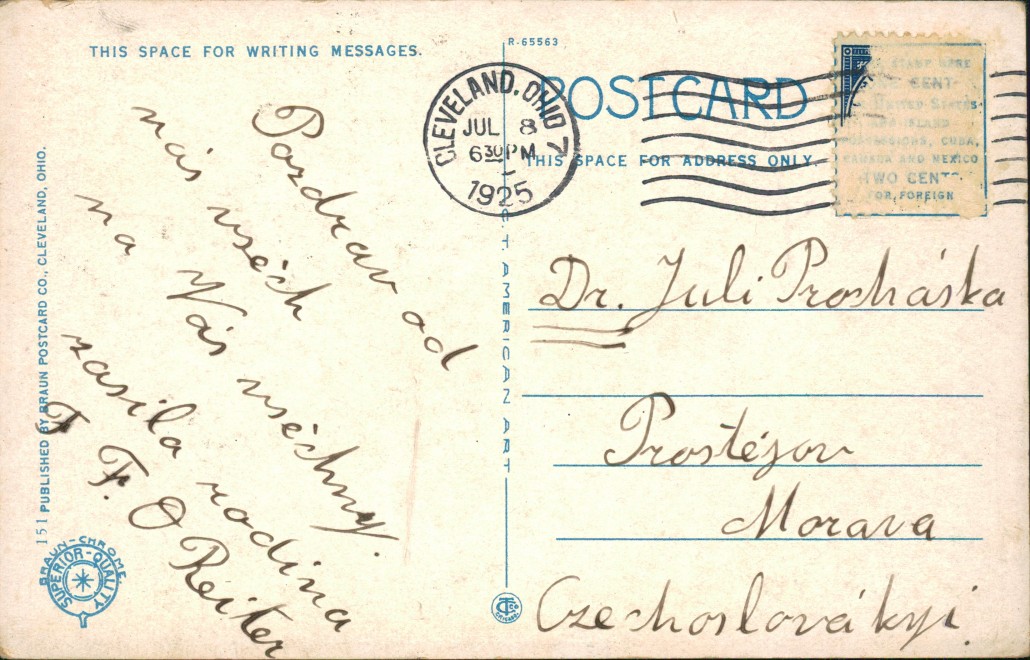 THIS SPACE FOR WRITING MESSAGES.
R-65563
POST CARD
THIS SPACE FOR ADDRESS ONLY.
CLEVELAND, OHIO 7
JUL 8
6 30 PM
1925
STAMP HERE
CENT
UNITED STATES
AND ISLAND
POSSESSIONS, CUBA,
CANADA AND MEXICO
TWO CENTS
FOR FOREIGN
Pozdrav od
nás všech
na Vás všechny.
zasila rodina
F. O Reiter
Dr. Juli Procháska
Prostéjov
Morava
Czechoslovákyi.
151 PUBLISHED BY BRAUN POSTCARD CO., CLEVELAND, OHIO.
BRAUN-CHROME.
SUPERIOR-QUALITY
AMERICAN ART